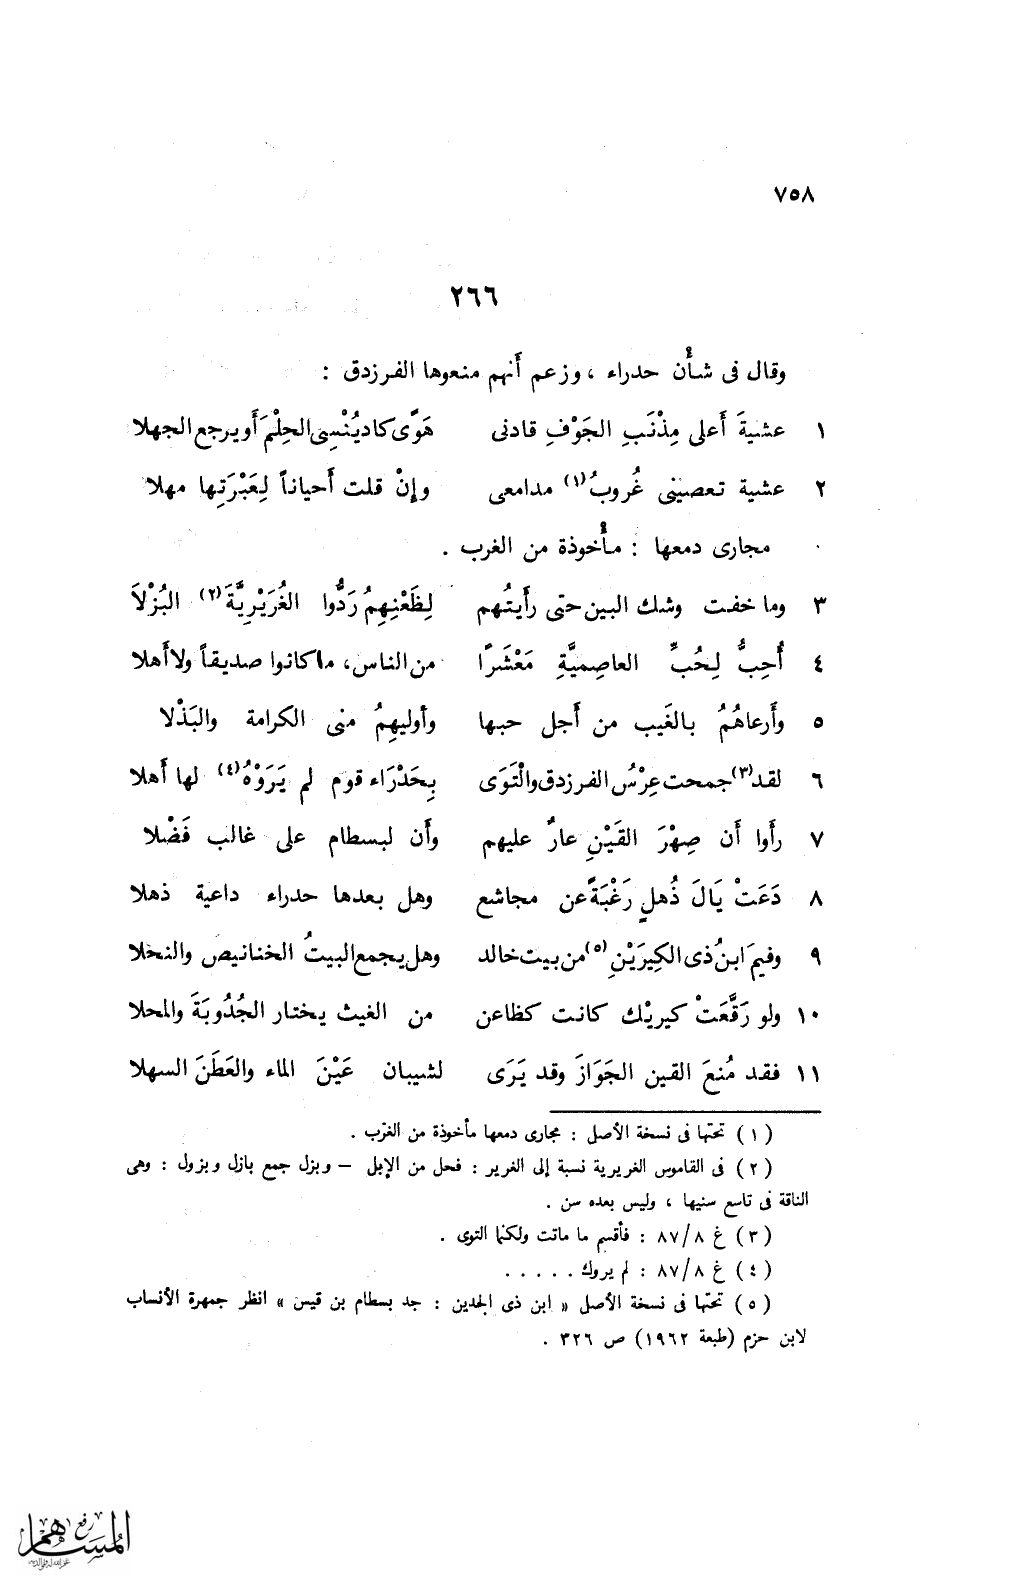 ٧٥٨
٢٦٦
وقال فى شأن حدراء ، وزعم أنهم منعوها الفرزدق :
١ عشيةَ أعلى مِذْنَبِ الجَوْفِ قادنى هَوًى كاد يُنْسِى الحِلْمَ أو يرجع الجهلا
٢ عشية تعصينى غُروبُ (١) مدامعى وإنْ قلت أحياناً لِعَبْرَتِها مهلا
مجارى دمعها : مأخوذة من الغرب .
٣ وما خفت وشك البين حتى رأيتُهم لِظَعْنِهِمُ رَدُّوا الغُرَيْرِيَّةَ (٢) البُزْلاَ
٤ أُحِبُّ لِحُبِّ العاصميَّةِ مَعْشَرًا من الناس، ما كانوا صديقاً ولا أهلا
٥ وأَرعاهُمُ بالغَيب من أَجل حبها وأوليهِمُ منى الكرامة والبَذْلا
٦ لقد (٣) جمحت عِرْسُ الفرزدق والْتَوَى بِحَدْرَاء قوم لم يَرَوْهُ (٤) لها أَهلا
٧ رأَوا أَن صِهْرَ القَيْنِ عارٌ عليهم وأن لبسطام على غالب فَضْلا
٨ دَعَتْ يَالَ ذُهلٍ رَغْبَةً عن مجاشع وهل بعدها حدراء داعية ذهلا
٩ وفيمَ ابنُ ذى الكِيرَيْنِ (٥) من بيت خالد وهل يجمع البيتُ الخنانيص والنحلا
١٠ ولو رَقَّعَتْ كيريْك كانت كظاعن من الغيث يختار الجُدُوبَةَ والمحلا
١١ فقد مُنعَ القين الجَوَازَ وقد يَرَى لشيبان عَيْنَ الماء والعَطَنَ السهلا
(١) تحتها فى نسخة الأصل : مجارى دمعها مأخوذة من الغرب .
(٢) فى القاموس الغريرية نسبة إلى الغرير : فحل من الإبل – وبزل جمع بازل وبزول : وهى
الناقة فى تاسع سنيها ، وليس بعده سن .
(٣) غ ٨/٨٧ : فأقسم ما ماتت ولكنما التوى .
(٤) غ ٨/٨٧ : لم يروك . . . . .
(٥) تحتها فى نسخة الأصل « ابن ذى الجدين : جد بسطام بن قيس » انظر جمهرة الأنساب
لابن حزم (طبعة ١٩٦٢) ص ٣٢٦ .